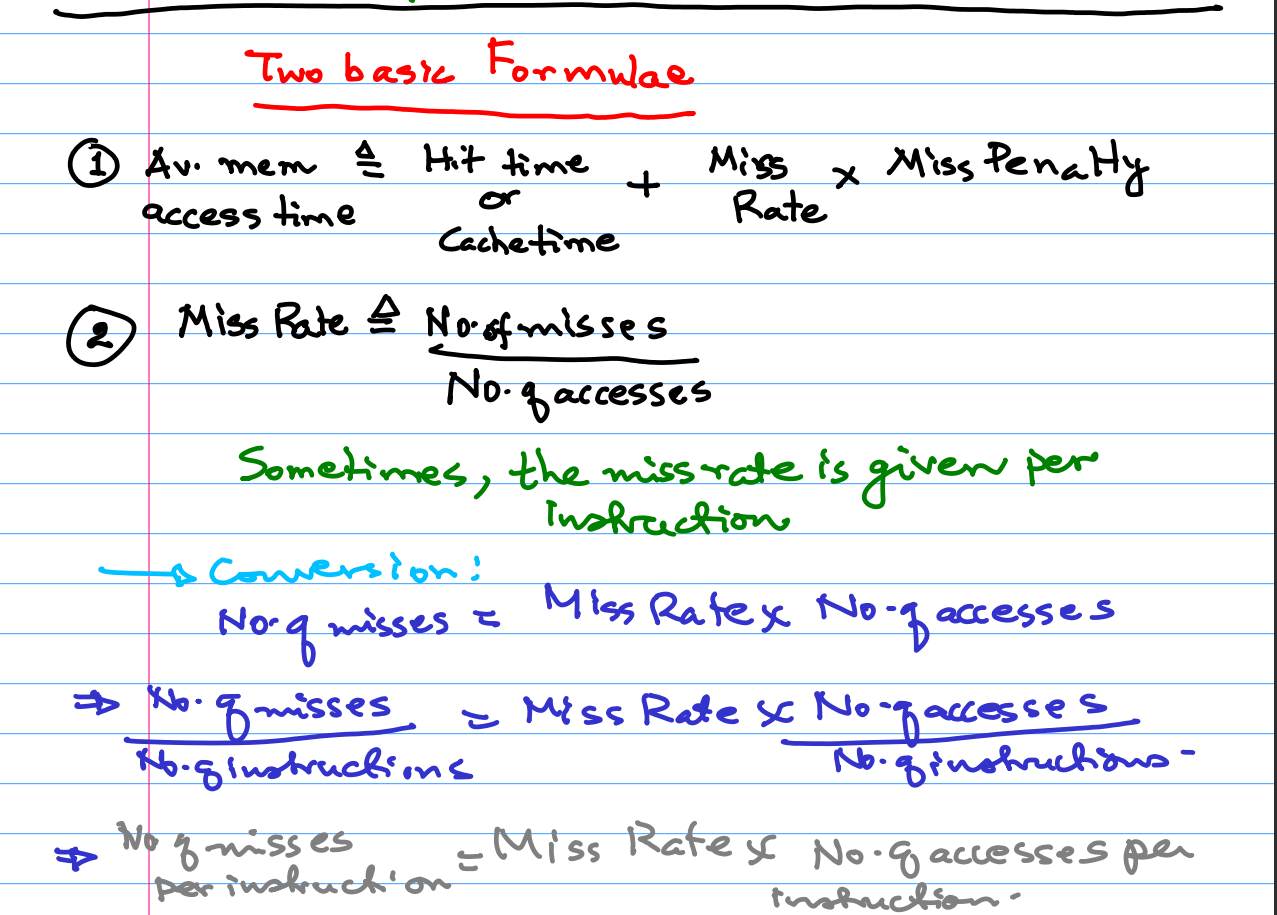 Two basic Formulae
① Av. mem access time ≜ Hit time or Cache time + Miss Rate × Miss Penalty
② Miss Rate ≜ No. of misses / No. of accesses
Sometimes, the miss rate is given per
instruction
→ Conversion:
No. of misses = Miss Rate × No. of accesses
⇒ No. of misses / No. of instructions = Miss Rate × No. of accesses / No. of instructions
⇒ No of misses per instruction = Miss Rate × No. of accesses per instruction.